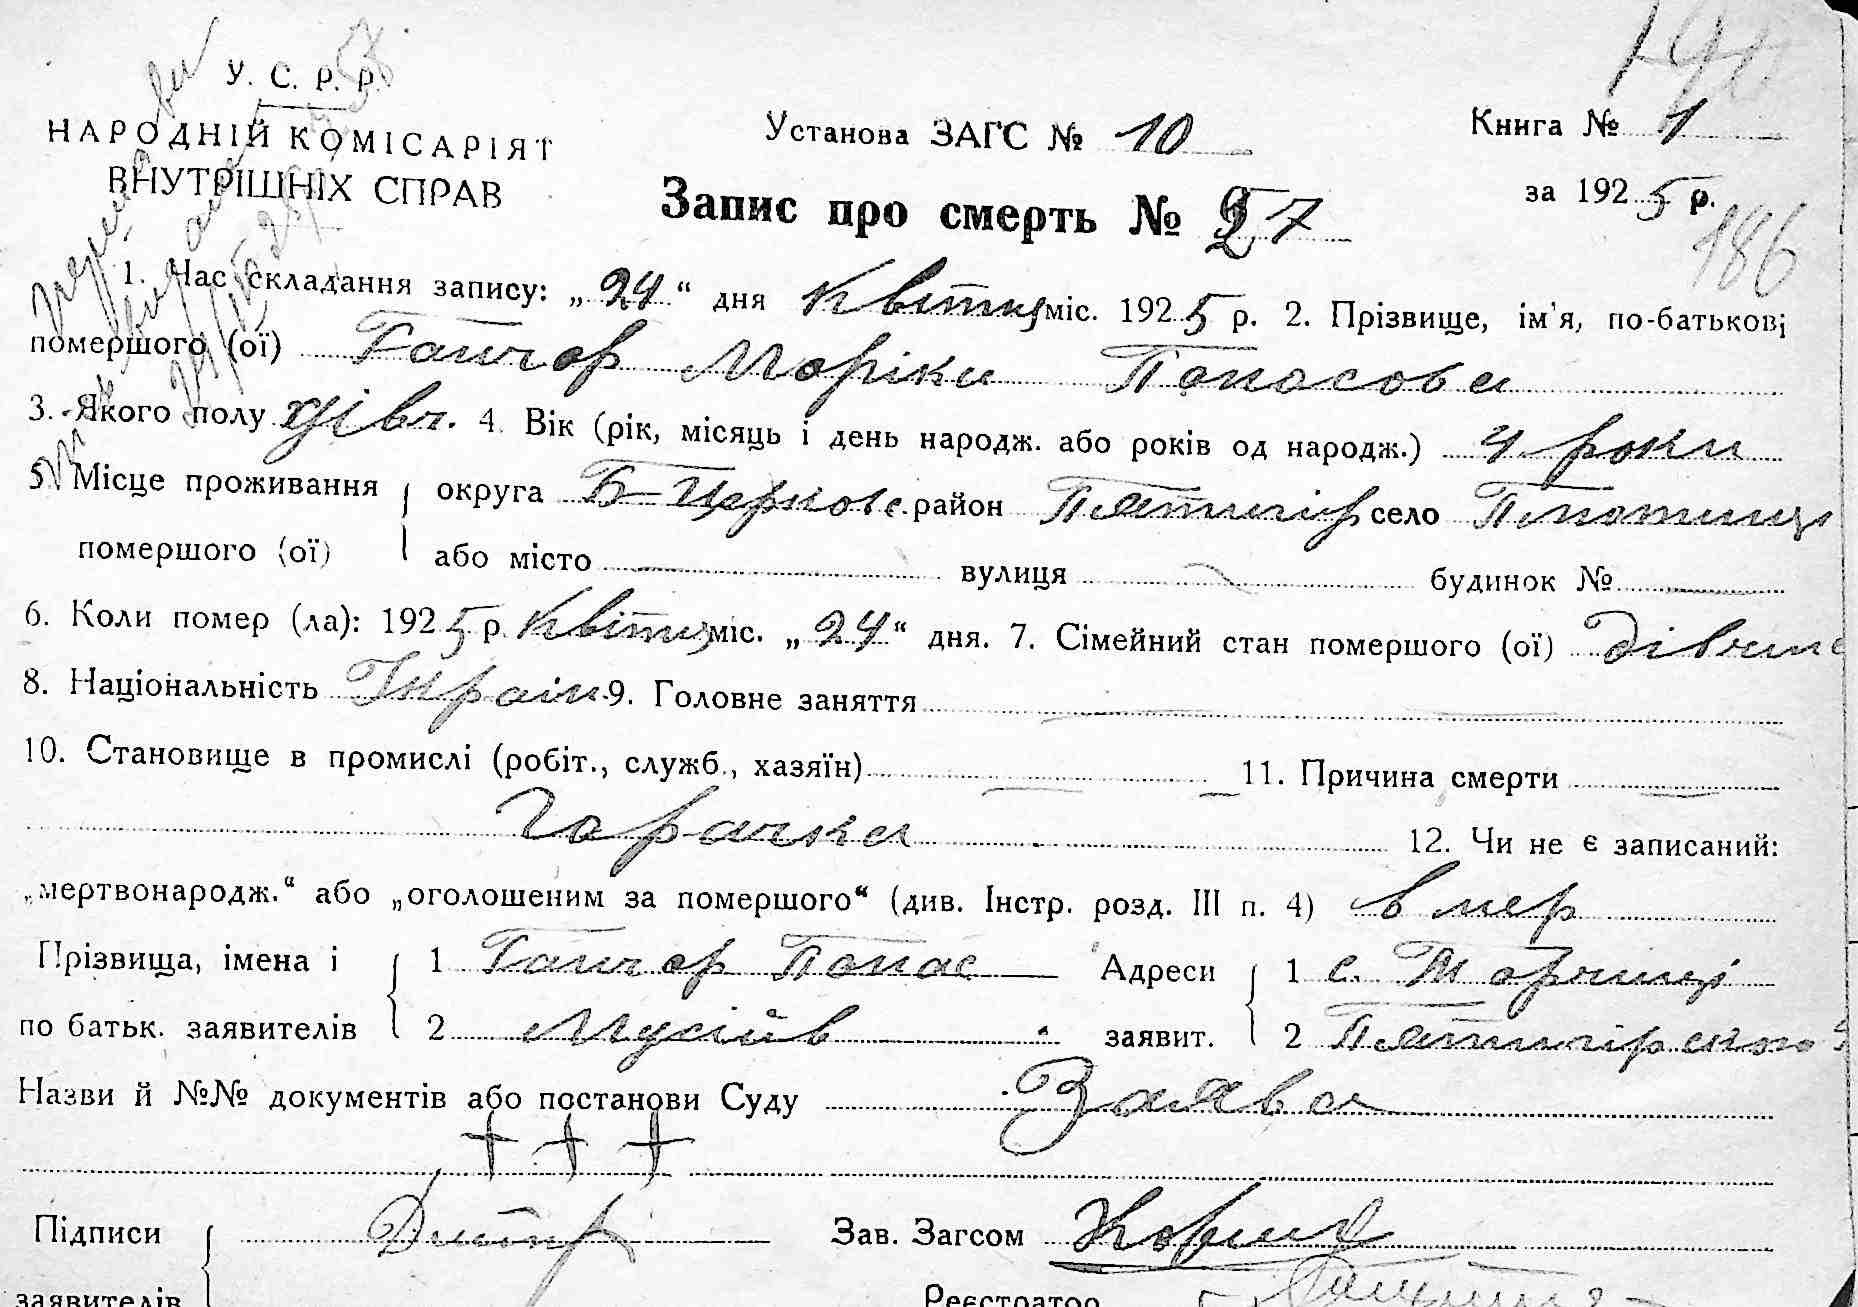 У. С. Р. Р.
НАРОДНІЙ КОМІСАРІЯТ
ВНУТРІШНІХ СПРАВ
Установа ЗАГС № 10
Книга № 1
за 1925 р.
Запис про смерть № 27
186
1. Час складання запису: „24“ дня Квітня міс. 1925 р. 2. Прізвище, ім'я, по-батькові
помершого (ої) Ганчар Маріки Панасова
3. Якого полу дівч. 4. Вік (рік, місяць і день народж. або років од народж.) 4 роки
5. Місце проживання округа Б-Церков. район Пятигір село
помершого (ої) або місто вулиця будинок №
6. Коли помер (ла): 1925 р. Квітня міс. „24“ дня. 7. Сімейний стан помершого (ої) дівчина
8. Національність Україн. 9. Головне заняття
10. Становище в промислі (робіт., служб., хазяїн) 11. Причина смерти
Гарячка 12. Чи не є записаний:
„мертвонародж.“ або „оголошеним за помершого“ (див. Інстр. розд. III п. 4) вмер
Прізвища, імена і 1 Ганчар Панас Адреси 1 с. Торчиці
по батьк. заявителів 2 Мусійв заявит. 2 Пятигірского
Назви й №№ документів або постанови Суду Заява
+ + +
Підписи Зав. Загсом
заявителів Реєстратор